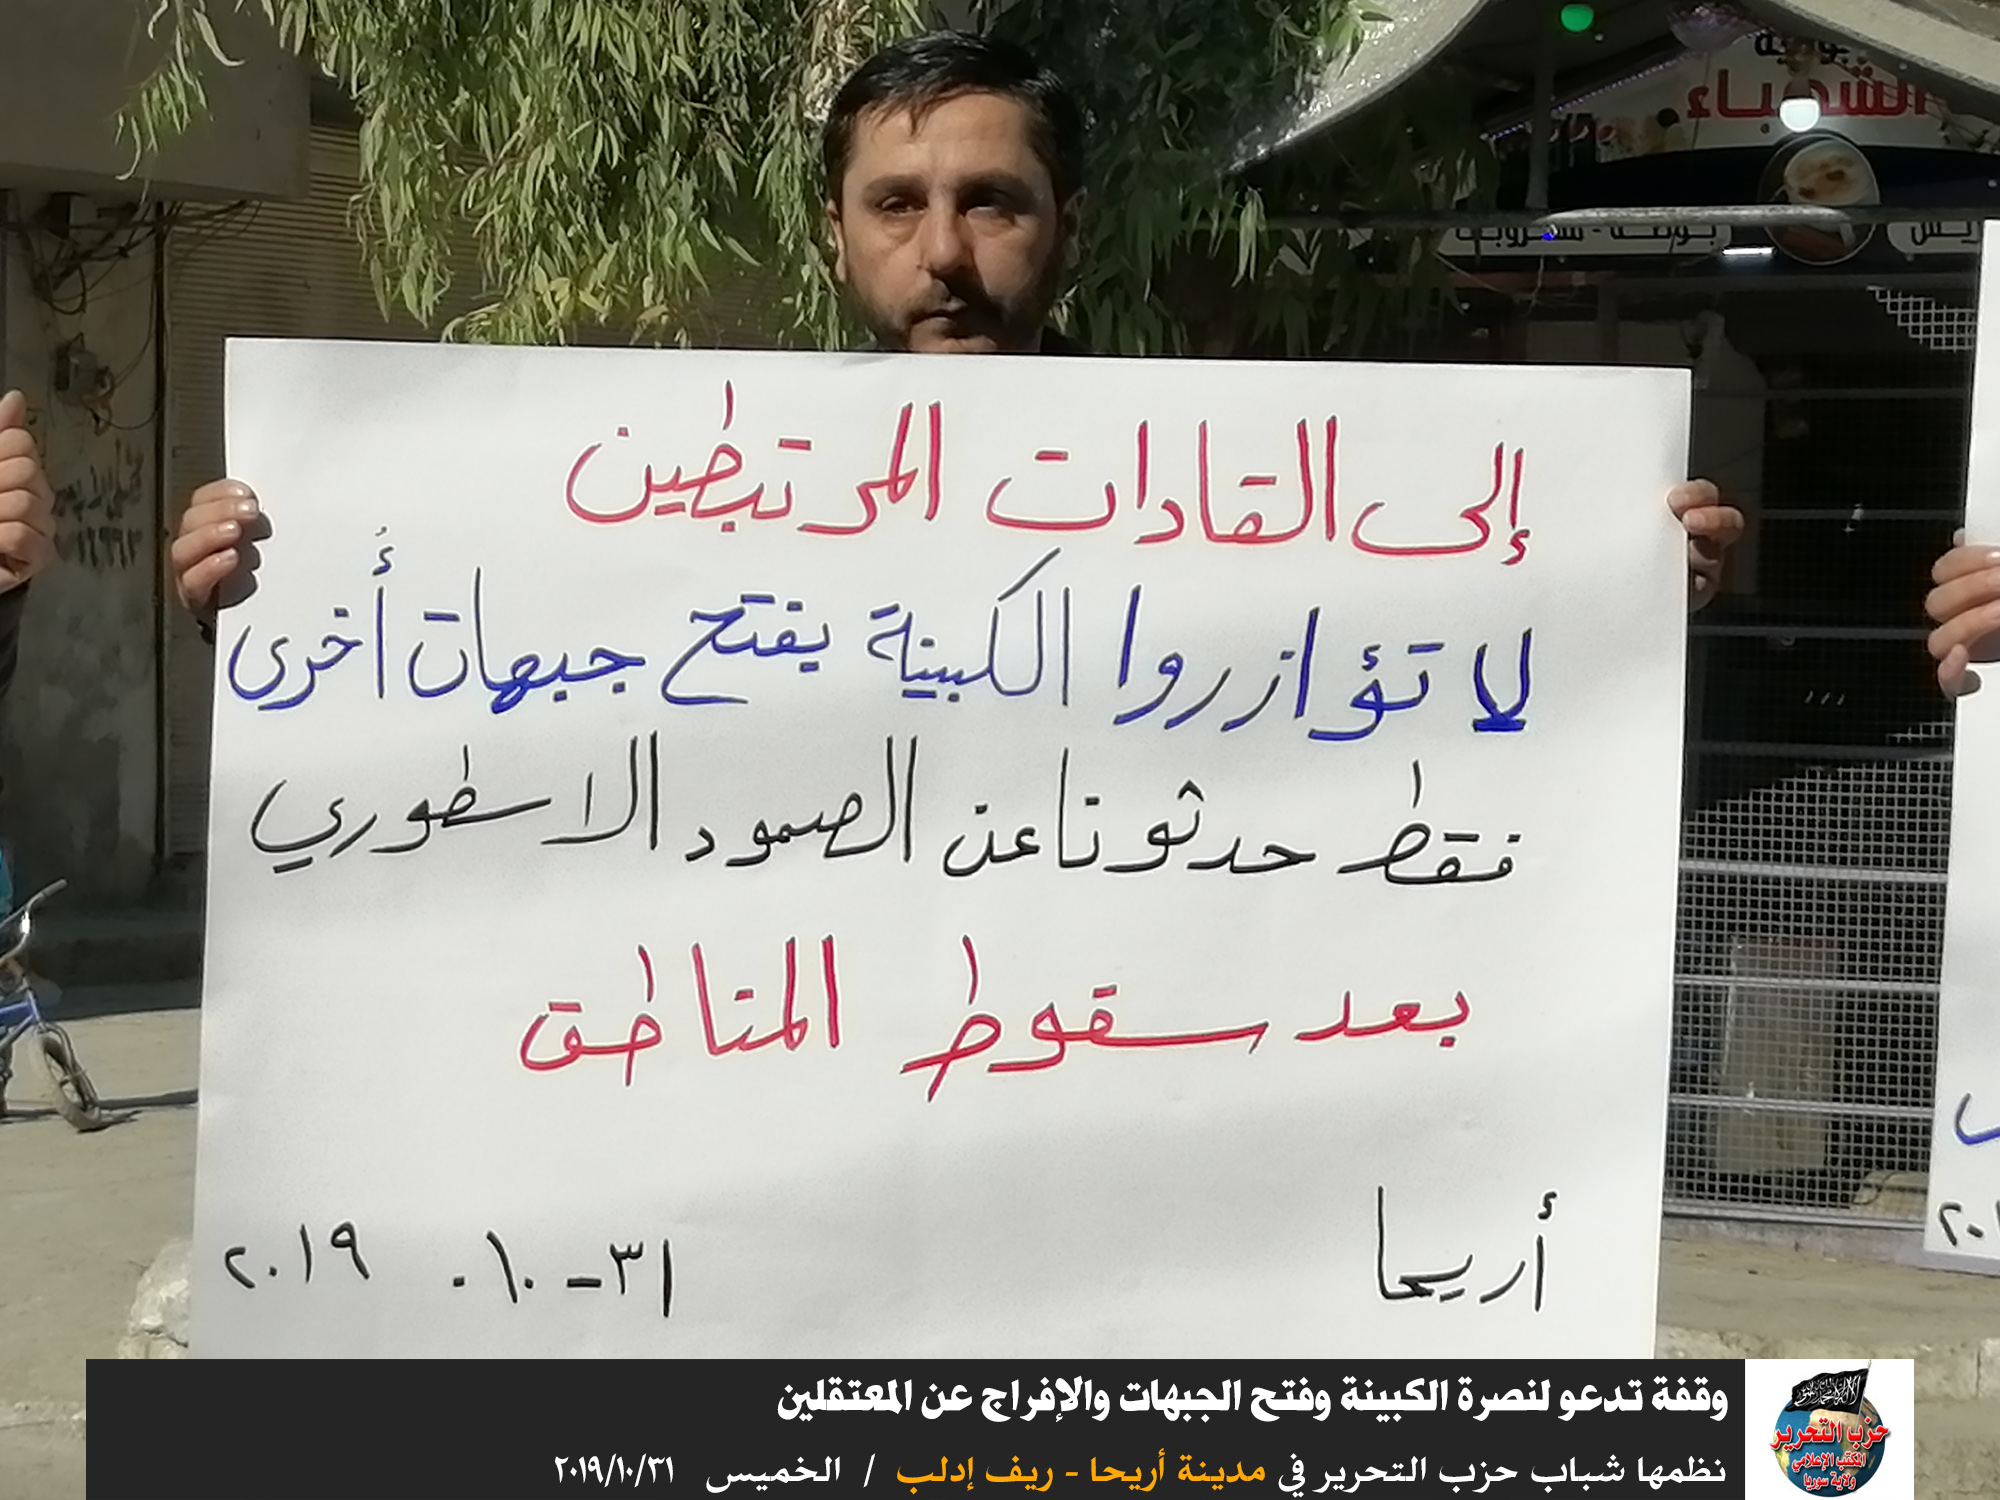 الشهباء
إلى القادات المرتبطين
لا تؤازروا الكبينة بفتح جبهات أُخرى
فقط حدثونا عن الصمود الاسطوري
بعد سقوط المناطق
أريحا ٣١-١٠. ٢٠١٩
وقفة تدعو لنصرة الكبينة وفتح الجبهات والإفراج عن المعتقلين
نظمها شباب حزب التحرير في مدينة أريحا - ريف إدلب / الخميس ٢٠١٩/١٠/٣١
حزب التحرير
المكتب الإعلامي
ولاية سوريا